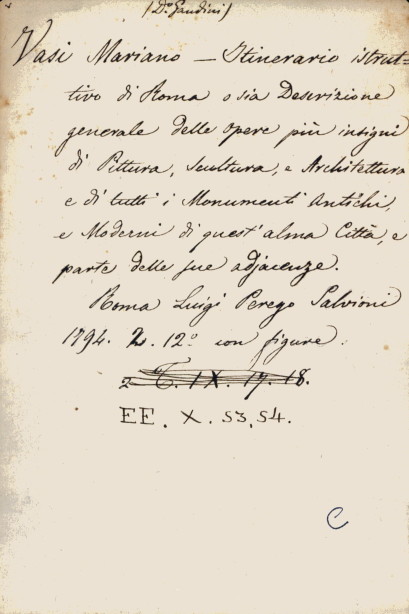 (Dn Gandini)
Vasi Mariano — Itinerario istrut-
tivo di Roma o sia Descrizione
generale delle opere più insigni
di Pittura, Scultura, e Architettura
e di tutti i Monumenti Antichi,
e Moderni di quest'alma Città, e
parte delle sue adjacenze.
Roma Luigi Perego Salvioni
1794. 2. 12º con figure.
2 T. IX. 17. 18.
EE. X. 53, 54.
C